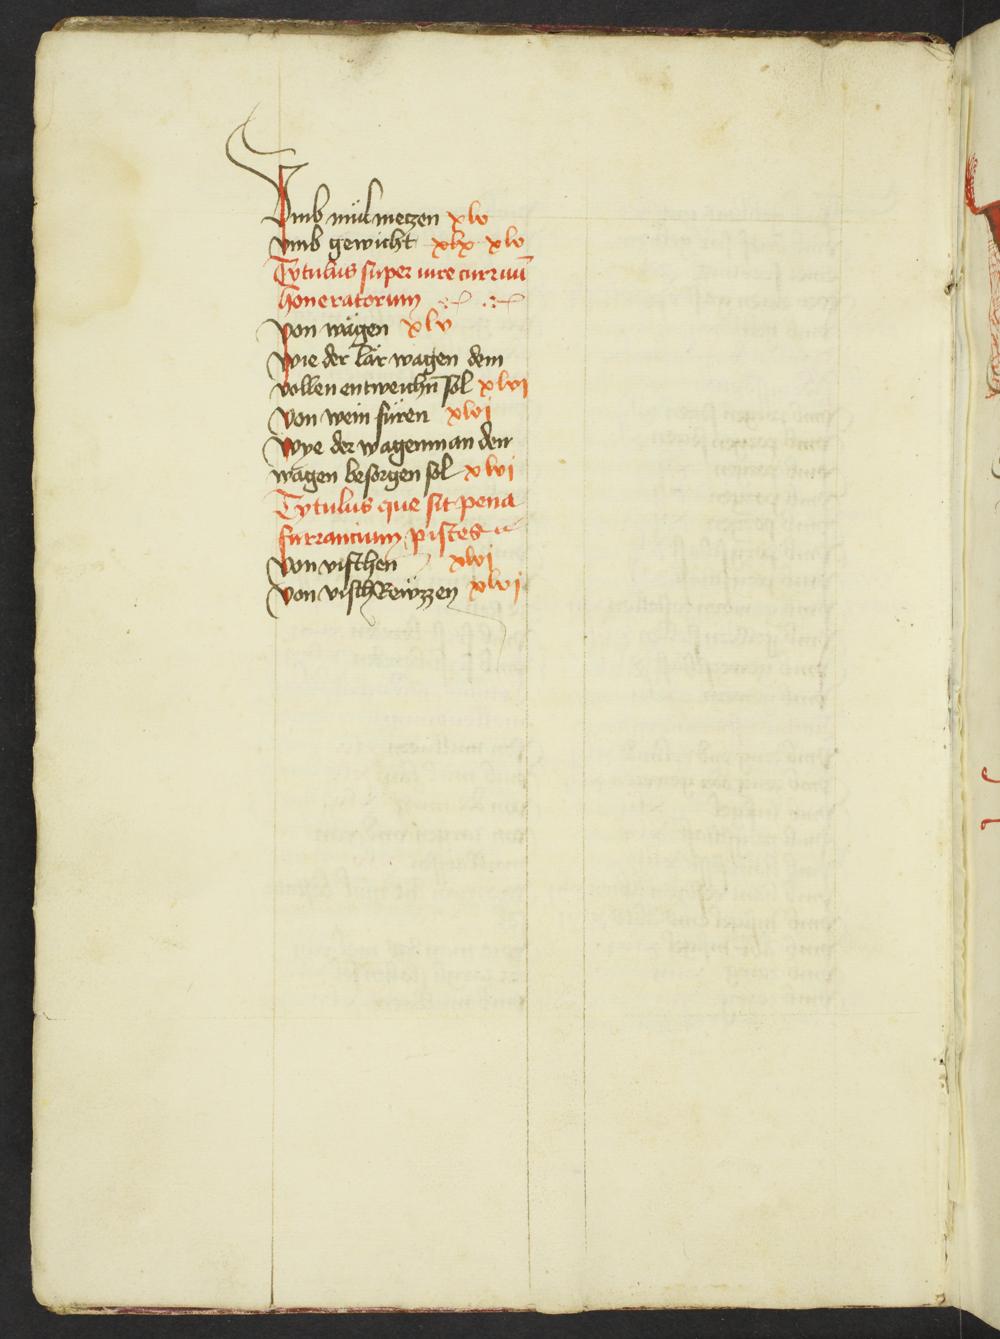 Vmb mülmetzen xlv
vmb gewicht xlv
Tytulus super iure curruū
honeratorum
von wägen xlv
wie der lär wagen dem
vollen entweichn̄ sol xlvi
von wein füren xlvj
wye der wagenman den
wagen besorgen sol xlvi
Tytulus que sit pena
furrancium pisces
von visschen xlvj
von vischRewzzen xlvj